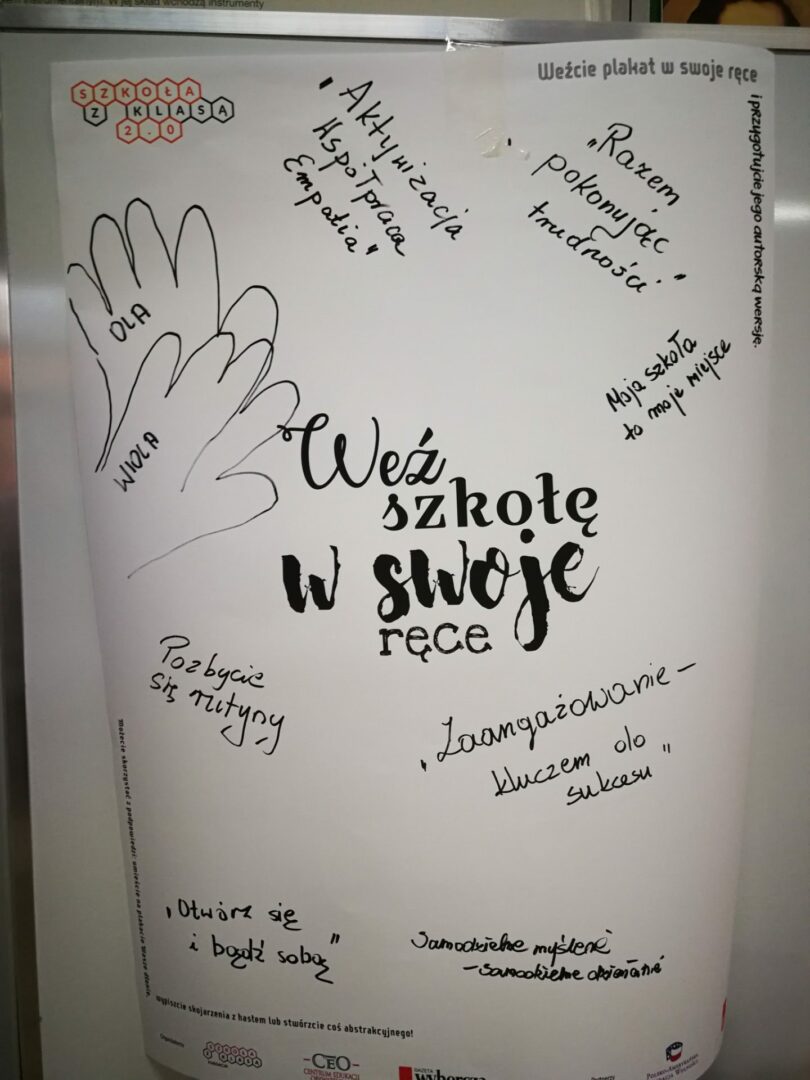 W jej skład wchodzą instrumenty
Weźcie plakat w swoje ręce
i przygotujcie jego autorską wersję.
SZKOŁA
Z KLASĄ
2.0
"Aktywizacja
Współpraca
Empatia"
"Razem
pokonując
trudności"
OLA
WIOLA
Moja szkoła
to moje miejsce
Weź
szkołę
w swoje
ręce
Pozbycie
się rutyny
"Zaangażowanie –
kluczem do
sukcesu"
"Otwórz się
i bądź sobą"
Samodzielne myślenie
– samodzielne działanie
Możecie skorzystać z podpowiedzi: umieśćcie na plakacie Wasze dłonie,
wypiszcie skojarzenia z hasłem lub stwórzcie coś abstrakcyjnego!
Organizatorzy
SZKOŁA
Z KLASĄ
CEO
CENTRUM EDUKACJI
GAZETA
wyborcza
Partnerzy
POLSKO-AMERYKAŃSKA
FUNDACJA WOLNOŚCI